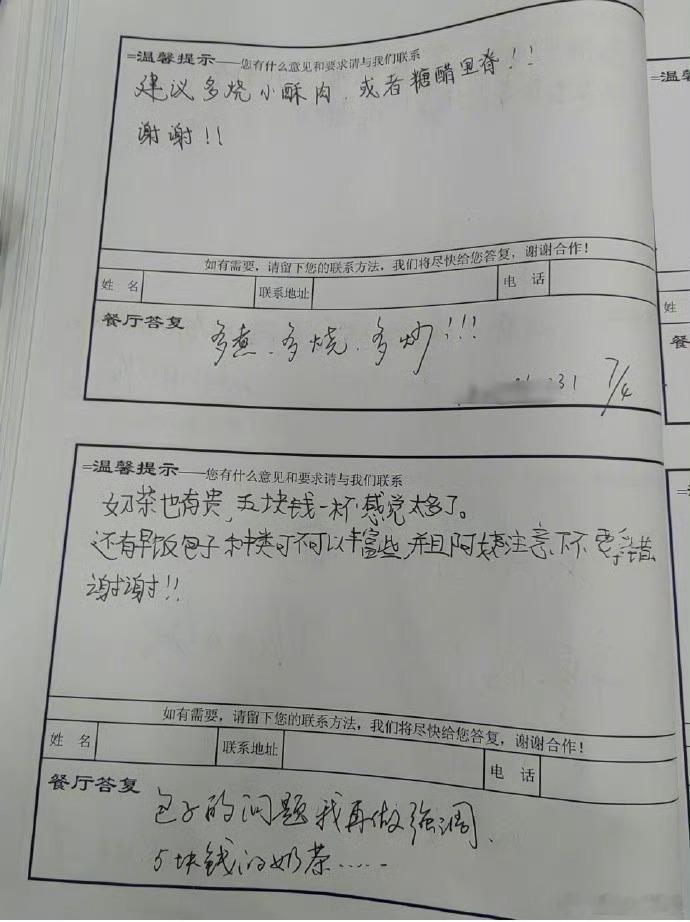 =温馨提示——您有什么意见和要求请与我们联系
建议多烧小酥肉、或者糖醋里脊!!
谢谢!!
如有需要,请留下您的联系方法,我们将尽快给您答复,谢谢合作!
姓 名 联系地址 电 话
餐厅答复
多煮、多烧、多炒!!!
31 7/4
=温馨提示——您有什么意见和要求请与我们联系
奶茶也有贵,五块钱一杯感觉太多了。
还有早饭包子种类可不可以丰富些,并且阿姨注意下不要拿错
谢谢!!
如有需要,请留下您的联系方法,我们将尽快给您答复,谢谢合作!
姓 名 联系地址 电 话
餐厅答复
包子的问题我再做强调、
5块钱的奶茶……
=温
姓
餐